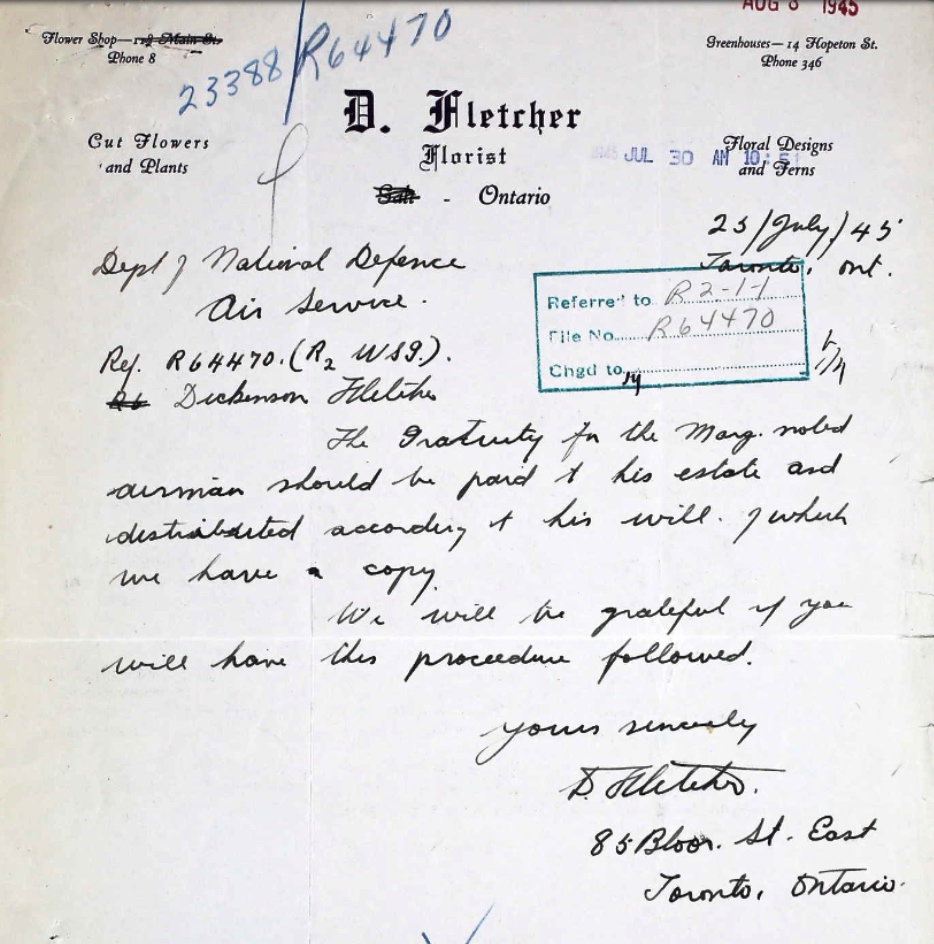 AUG 8 1945
Flower Shop—128 Main St.
Phone 8
23388/R64470
Greenhouses—14 Hopeton St.
Phone 346
D. Fletcher
Florist
Cut Flowers
and Plants
Floral Designs
and Ferns
1945 JUL 30 AM 10:51
- Ontario
25/July/45
Toronto, Ont.
Dept of National Defence
Air Service.
Referred to R2-1-1
File No. R64470
Chgd to
Ref. R64470. (R2 WSG.).
R6 Dickenson Fletcher
The Gratuity for the Marg. noted
airman should be paid to his estate and
destributed according to his will. of which
we have a copy.
We will be grateful if you
will have this proceedure followed.
Yours sincerely
D. Fletcher.
85 Bloor. St. East
Toronto, Ontario.